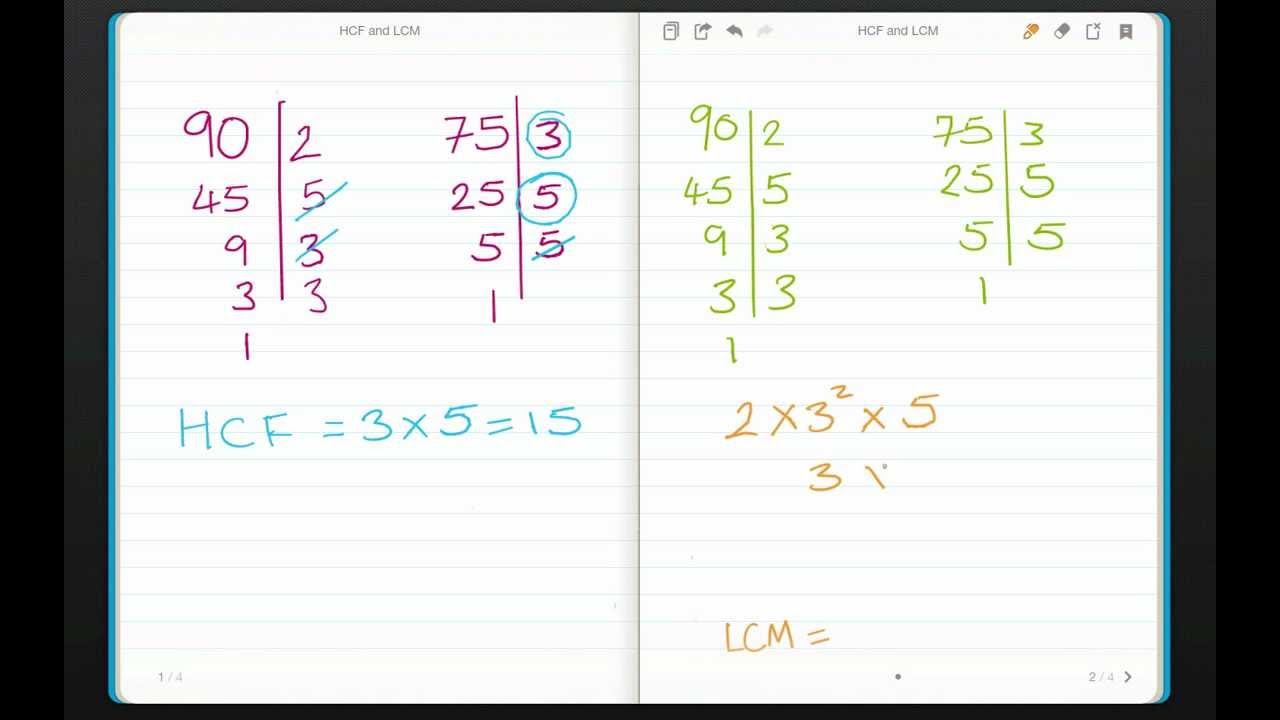 HCF and LCM
90 2
45 5
9 3
3 3
1
75 3
25 5
5 5
1
HCF = 3 × 5 = 15
1 / 4
HCF and LCM
90 2
45 5
9 3
3 3
1
75 3
25 5
5 5
1
2 × 3² × 5
3
LCM =
2 / 4